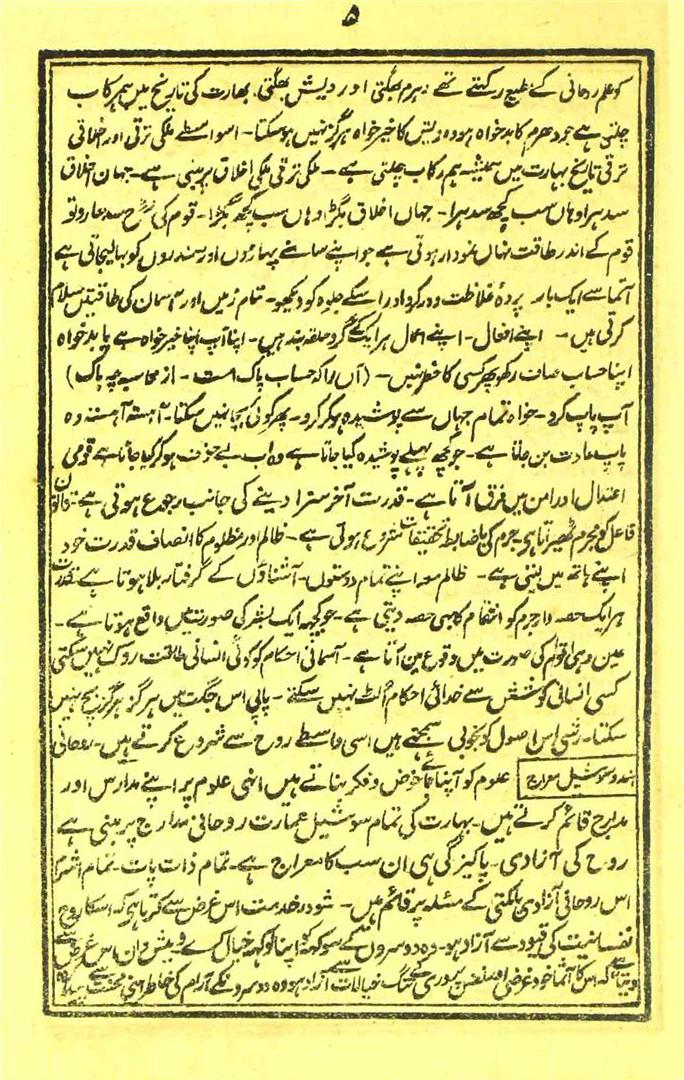 ۵
کو علم روحانی کے مطیع رکھتے تھے دہرم بھگتی اور دیش بھگتی، بھارت کی تاریخ میں ہم رکاب
چلتی ہے جو دھرم کا بدخواہ ہو وہ دیش کا خیر خواہ ہرگز نہیں ہو سکتا۔ اسواسطے ملکی ترقی اور اخلاقی
ترقی تاریخ بھارت میں ہمیشہ ہم رکاب چلتی ہے۔ ملکی ترقی ملکی اخلاق پر مبنی ہے۔ جہان اخلاق
سدہرا وہاں سب کچھ سدہرا۔ جہاں اخلاق بگڑا وہاں سب کچھ بگڑا۔ قوم کی روح سدہارو تو
قوم کے اندر طاقت نہاں نمودار ہوتی ہے جو اپنے سامنے پہاڑوں اور سمندروں کو بہا لیجاتی ہے
آتما سے ایک بار پردۂ غلاظت دور کرو اور اسکے جلوہ کو دیکھو۔ تمام زمیں اور آسمان کی طاقتیں سلام
کرتی ہیں۔ اپنے افعال۔ اپنے اعمال ہر ایک کے گرد حلقہ بند ہیں۔ اپنا آپ اپنا خیر خواہ ہے یا بدخواہ
اپنا حساب صاف رکھو پھر کسی کا خطر نہیں۔ (آں را کہ حساب پاک است۔ از محاسبہ چہ باک)
آپ پاپ کرو۔ خواہ تمام جہاں سے پوشیدہ ہو کر کرو۔ پھر کوئی بچا نہیں سکتا۔ آہستہ آہستہ وہ
پاپ عادت بن جاتا ہے۔ جو کچھ پہلے پوشیدہ کیا جاتا ہے وہ اب بے خوف ہو کر کیا جاتا ہے قومی
اعتدال اور امن میں فرق آتا ہے۔ قدرت آخر سزا دینے کی جانب رجوع ہوتی ہے۔ قانون
فاعل کو مجرم ٹھیراتا ہی۔ جرم کی باضابطہ تحقیقات شروع ہوتی ہے۔ ظالم اور مظلوم کا انصاف قدرت خود
اپنے ہاتھ میں لیتی ہے۔ ظالم معہ اپنے تمام دوستوں۔ آشناؤں کے گرفتار بلا ہوتا ہے۔ قدرت
ہر ایک حصہ دار جرم کو انتقام کا بھی حصہ دیتی ہے۔ جو کچھ ایک بشر کی صورت میں واقع ہوتا ہے۔
عین وہی اقوام کی صورت میں وقوع میں آتا ہے۔ آسمانی احکام کو کوئی انسانی طاقت روک نہیں سکتی
کسی انسانی کوشش سے خدائی احکام الٹ نہیں سکتے۔ پاپی اس جگت میں ہرگز ہرگز بچ نہیں
سکتا۔ رشی اس اصول کو بخوبی سمجھتے ہیں اسی واسطے روح سے شروع کرتے ہیں۔ روحانی
ہندو سوشیل معراج
علوم کو اپنا جائے خوض و فکر بناتے ہیں انہی علوم پر اپنے مدارس اور
مدارج قائم کرتے ہیں۔ بھارت کی تمام سوشیل عمارت روحانی مدارج پر مبنی ہے
روح کی آزادی۔ پاکیزگی ہی ان سب کا معراج ہے۔ تمام ذات پات۔ تمام آشرم
اس روحانی آزادی یا مکتی کے مسئلہ پر قائم ہیں۔ شودر خدمت اس غرض سے کرتا ہی کہ اسکا روح
نفسانیت کی قیود سے آزاد ہو۔ وہ دوسروں کے سوکھ کو اپنا سوکھ خیال کرے ویش دان اس غرض سے
دیتا ہے کہ اس کا آتما خود غرضی اور نفس پروری کے تنگ خیالات سے آزاد ہو وہ دوسرونکے آرام کی خاطر اپنی محنت سے